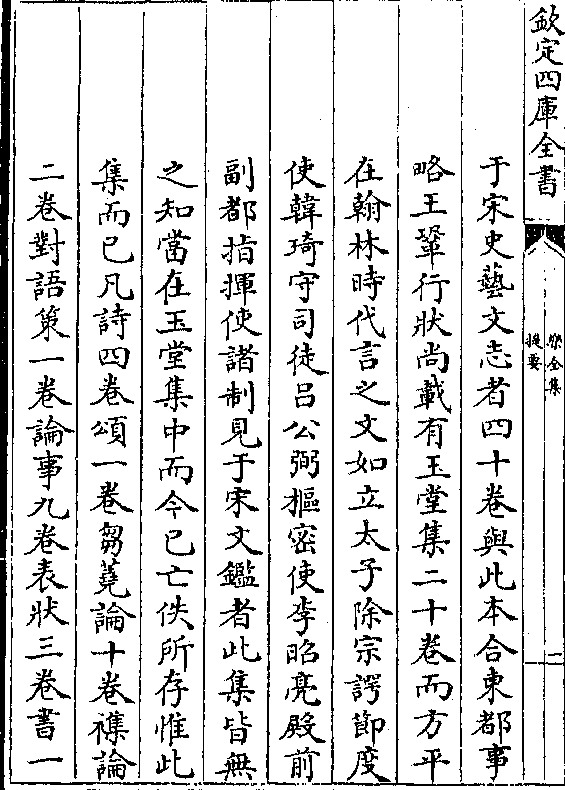 欽定四庫全書
樂全集
提要
二
于宋史藝文志者四十卷與此本合東都事
略王鞏行狀尚載有玉堂集二十卷而方平
在翰林時代言之文如立太子除宗諤節度
使韓琦守司徒吕公弼樞密使李昭亮殿前
副都指揮使諸制見于宋文鑑者此集皆無
之知當在玉堂集中而今已亡佚所存惟此
集而已凡詩四卷頌一卷芻蕘論十卷襍論
二卷對語策一卷論事九卷表狀三卷書一